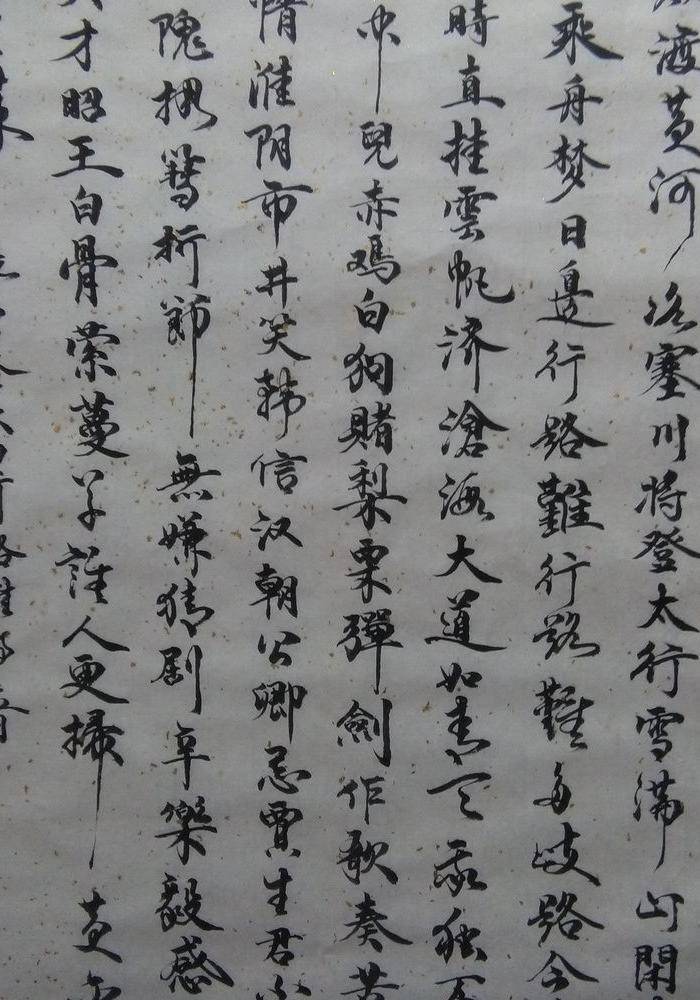 渡黄河冰塞川将登太行雪满山閑
乘舟梦日邊行路難行路難多歧路今
時直挂雲帆济滄海大道如青天我独不
中兒赤鸡白狗賭梨栗彈劍作歌奏苦
淮阴市井笑韩信汉朝公卿忌賈生君不
隗擁篲折節無嫌猜劇辛樂毅感
才昭王白骨縈蔓草誰人更掃黄金